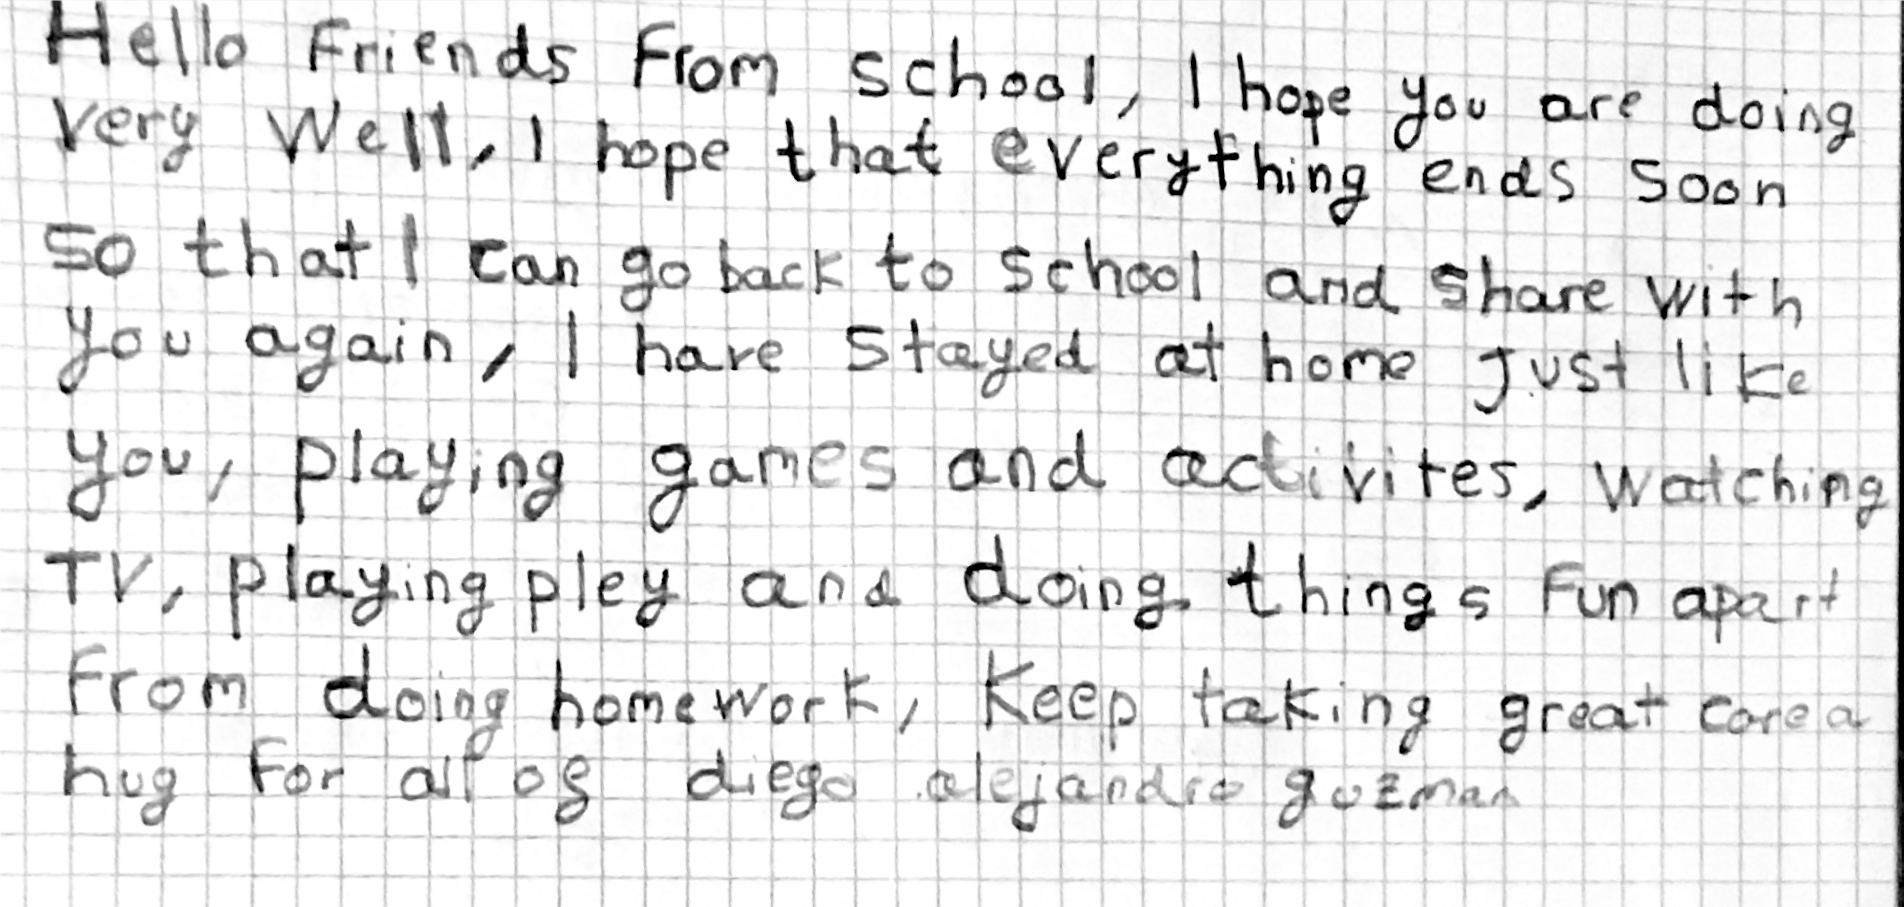 Hello Friends From school, I hope you are doing
very Well, I hope that everything ends soon
so that I can go back to school and share with
you again, I have stayed at home Just like
you, playing games and activites, watching
TV, playing pley and doing things Fun apart
From doing homework, Keep taking great care a
hug For all of diego alejandro guzman